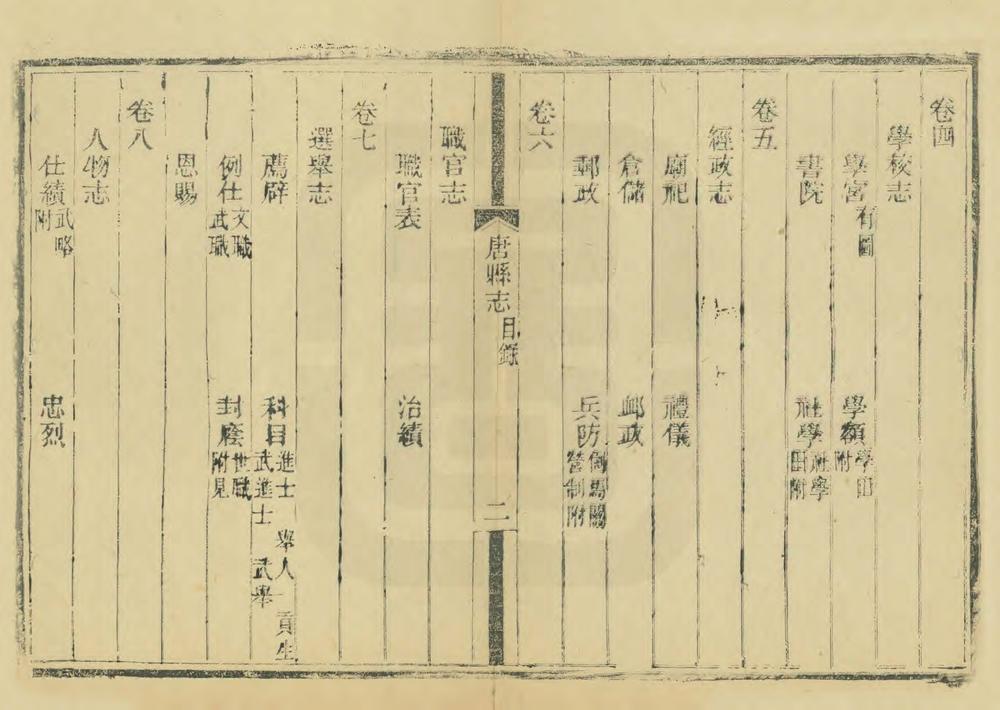 卷四
學校志
學宮有圖 學額學田附
書院 社學社學田附
卷五
經政志
廟祀 禮儀
倉儲 䘏政
郵政 兵防倒馬關營制附
卷六
唐縣志 目錄 二
職官志
職官表 治績
卷七
選舉志
薦辟 科目進士 舉人 貢生 武進士 武舉
例仕文職武職 封廕世職附見
恩賜
卷八
人物志
仕績武略附 忠烈